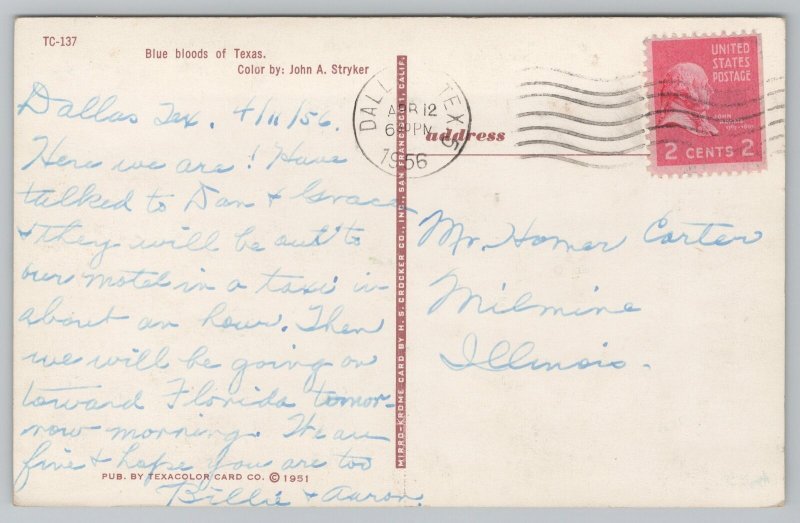 TC-137
Blue bloods of Texas.
Color by: John A. Stryker
Dallas Tex. 4/11/56.
Here we are! Have
talked to Dan + Grace
+ they will be out to
our motel in a taxi in
about an hour. Then
we will be going on
toward Florida tomor-
row morning. We are
fine + hope you are too
Billie + Aaron.
PUB. BY TEXACOLOR CARD CO. © 1951
MIRRO-KROME CARD BY H. S. CROCKER CO., INC., SAN FRANCISCO 1, CALIF.
DALL TEX
APR 12
6 PM
1956
address
UNITED
STATES
POSTAGE
JOHN
2 CENTS 2
Mr. Homer Carter
Milmine
Illinois.